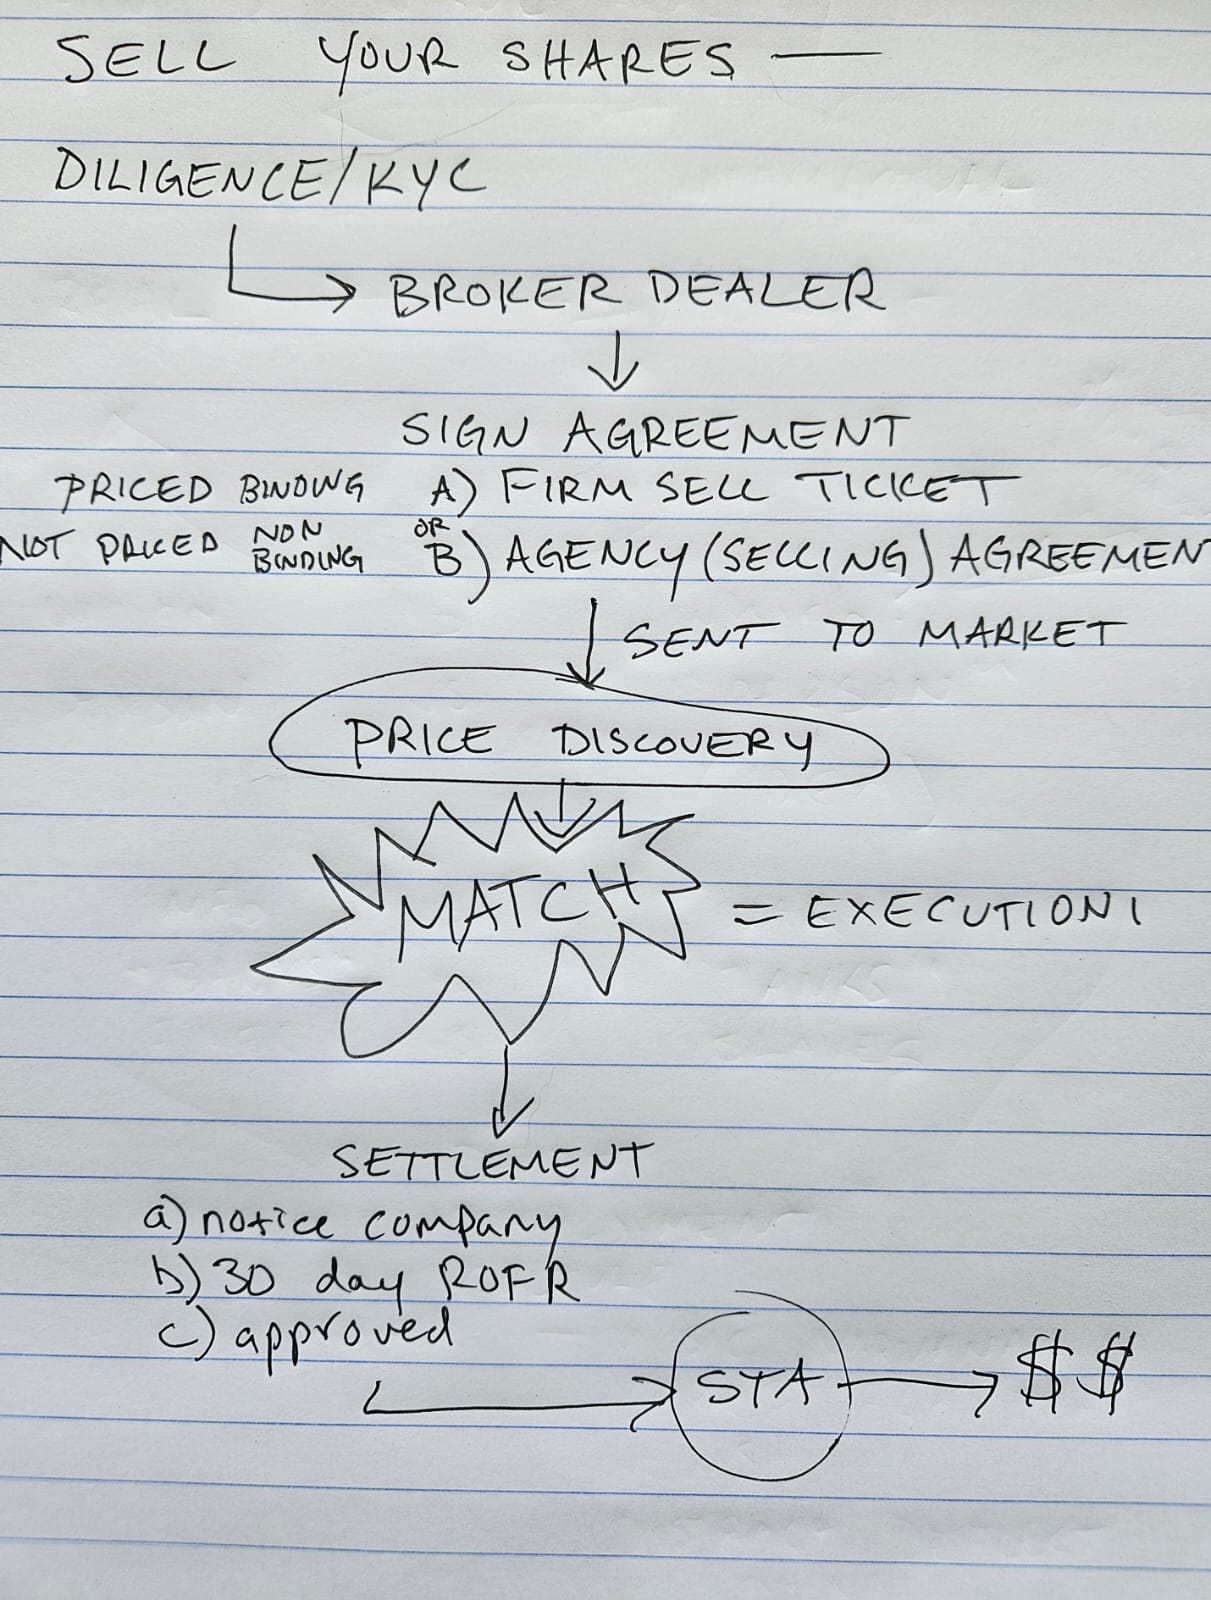 SELL YOUR SHARES —
DILIGENCE/KYC
BROKER DEALER
SIGN AGREEMENT
PRICED BINDING A) FIRM SELL TICKET
OR
NOT PRICED NON BINDING B) AGENCY (SELLING) AGREEMENT
SENT TO MARKET
PRICE DISCOVERY
MATCH = EXECUTION!
SETTLEMENT
a) notice company
b) 30 day ROFR
c) approved
STA $$